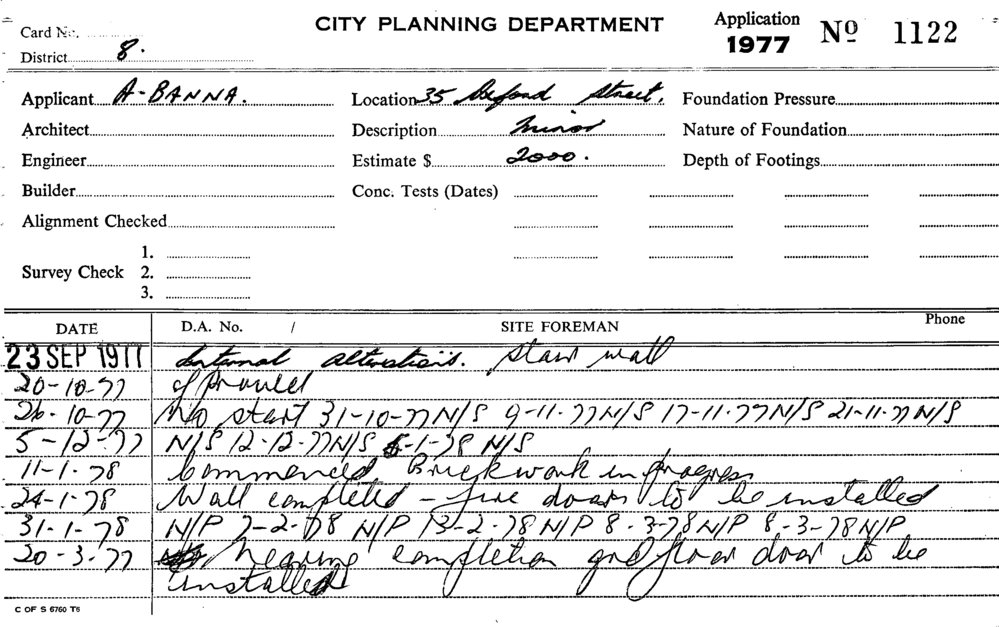 CITY PLANNING DEPARTMENT
Application 1977 Nº 1122
Card No.
District 8.
Applicant A-BANNA. Location 35 Street, Foundation Pressure
Architect Description Minor Nature of Foundation
Engineer Estimate $ 2000. Depth of Footings
Builder Conc. Tests (Dates)
Alignment Checked
1.
Survey Check 2.
3.
DATE D.A. No. / SITE FOREMAN Phone
23 SEP 1977 Internal alterations. Stair wall
20-10-77 Approved
26-10-77 No start 31-10-77 N/S 9-11-77 N/S 17-11-77 N/S 21-11-77 N/S
5-12-77 N/S 12-12-77 N/S 6-1-78 N/S
11-1-78 Commenced Brickwork in progress
24-1-78 Wall completed - fire doors to be installed
31-1-78 N/P 7-2-78 N/P 13-2-78 N/P 8-3-78 N/P 8-3-78 N/P
20-3-77 Nearing completion grd floor door to be
installed
C OF S 6760 T6